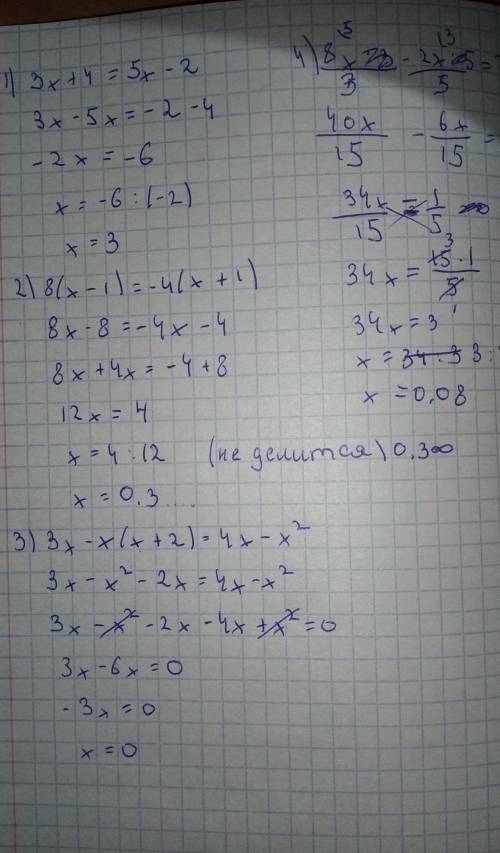 1) 3x + 4 = 5x - 2
3x - 5x = -2 - 4
-2x = -6
x = -6 : (-2)
x = 3
2) 8(x - 1) = -4(x + 1)
8x - 8 = -4x - 4
8x + 4x = -4 + 8
12x = 4
x = 4 : 12 (не делится) 0,3∞
x = 0,3....
3) 3x - x(x + 2) = 4x - x²
3x - x² - 2x = 4x - x²
3x - x² - 2x - 4x + x² = 0
3x - 6x = 0
-3x = 0
x = 0
4) 8x/3 - 2x/5 =
40x/15 - 6x/15 =
34x/15 = 1/5
34x = 15·1/5
34x = 3
x = 3 :
x = 0,08